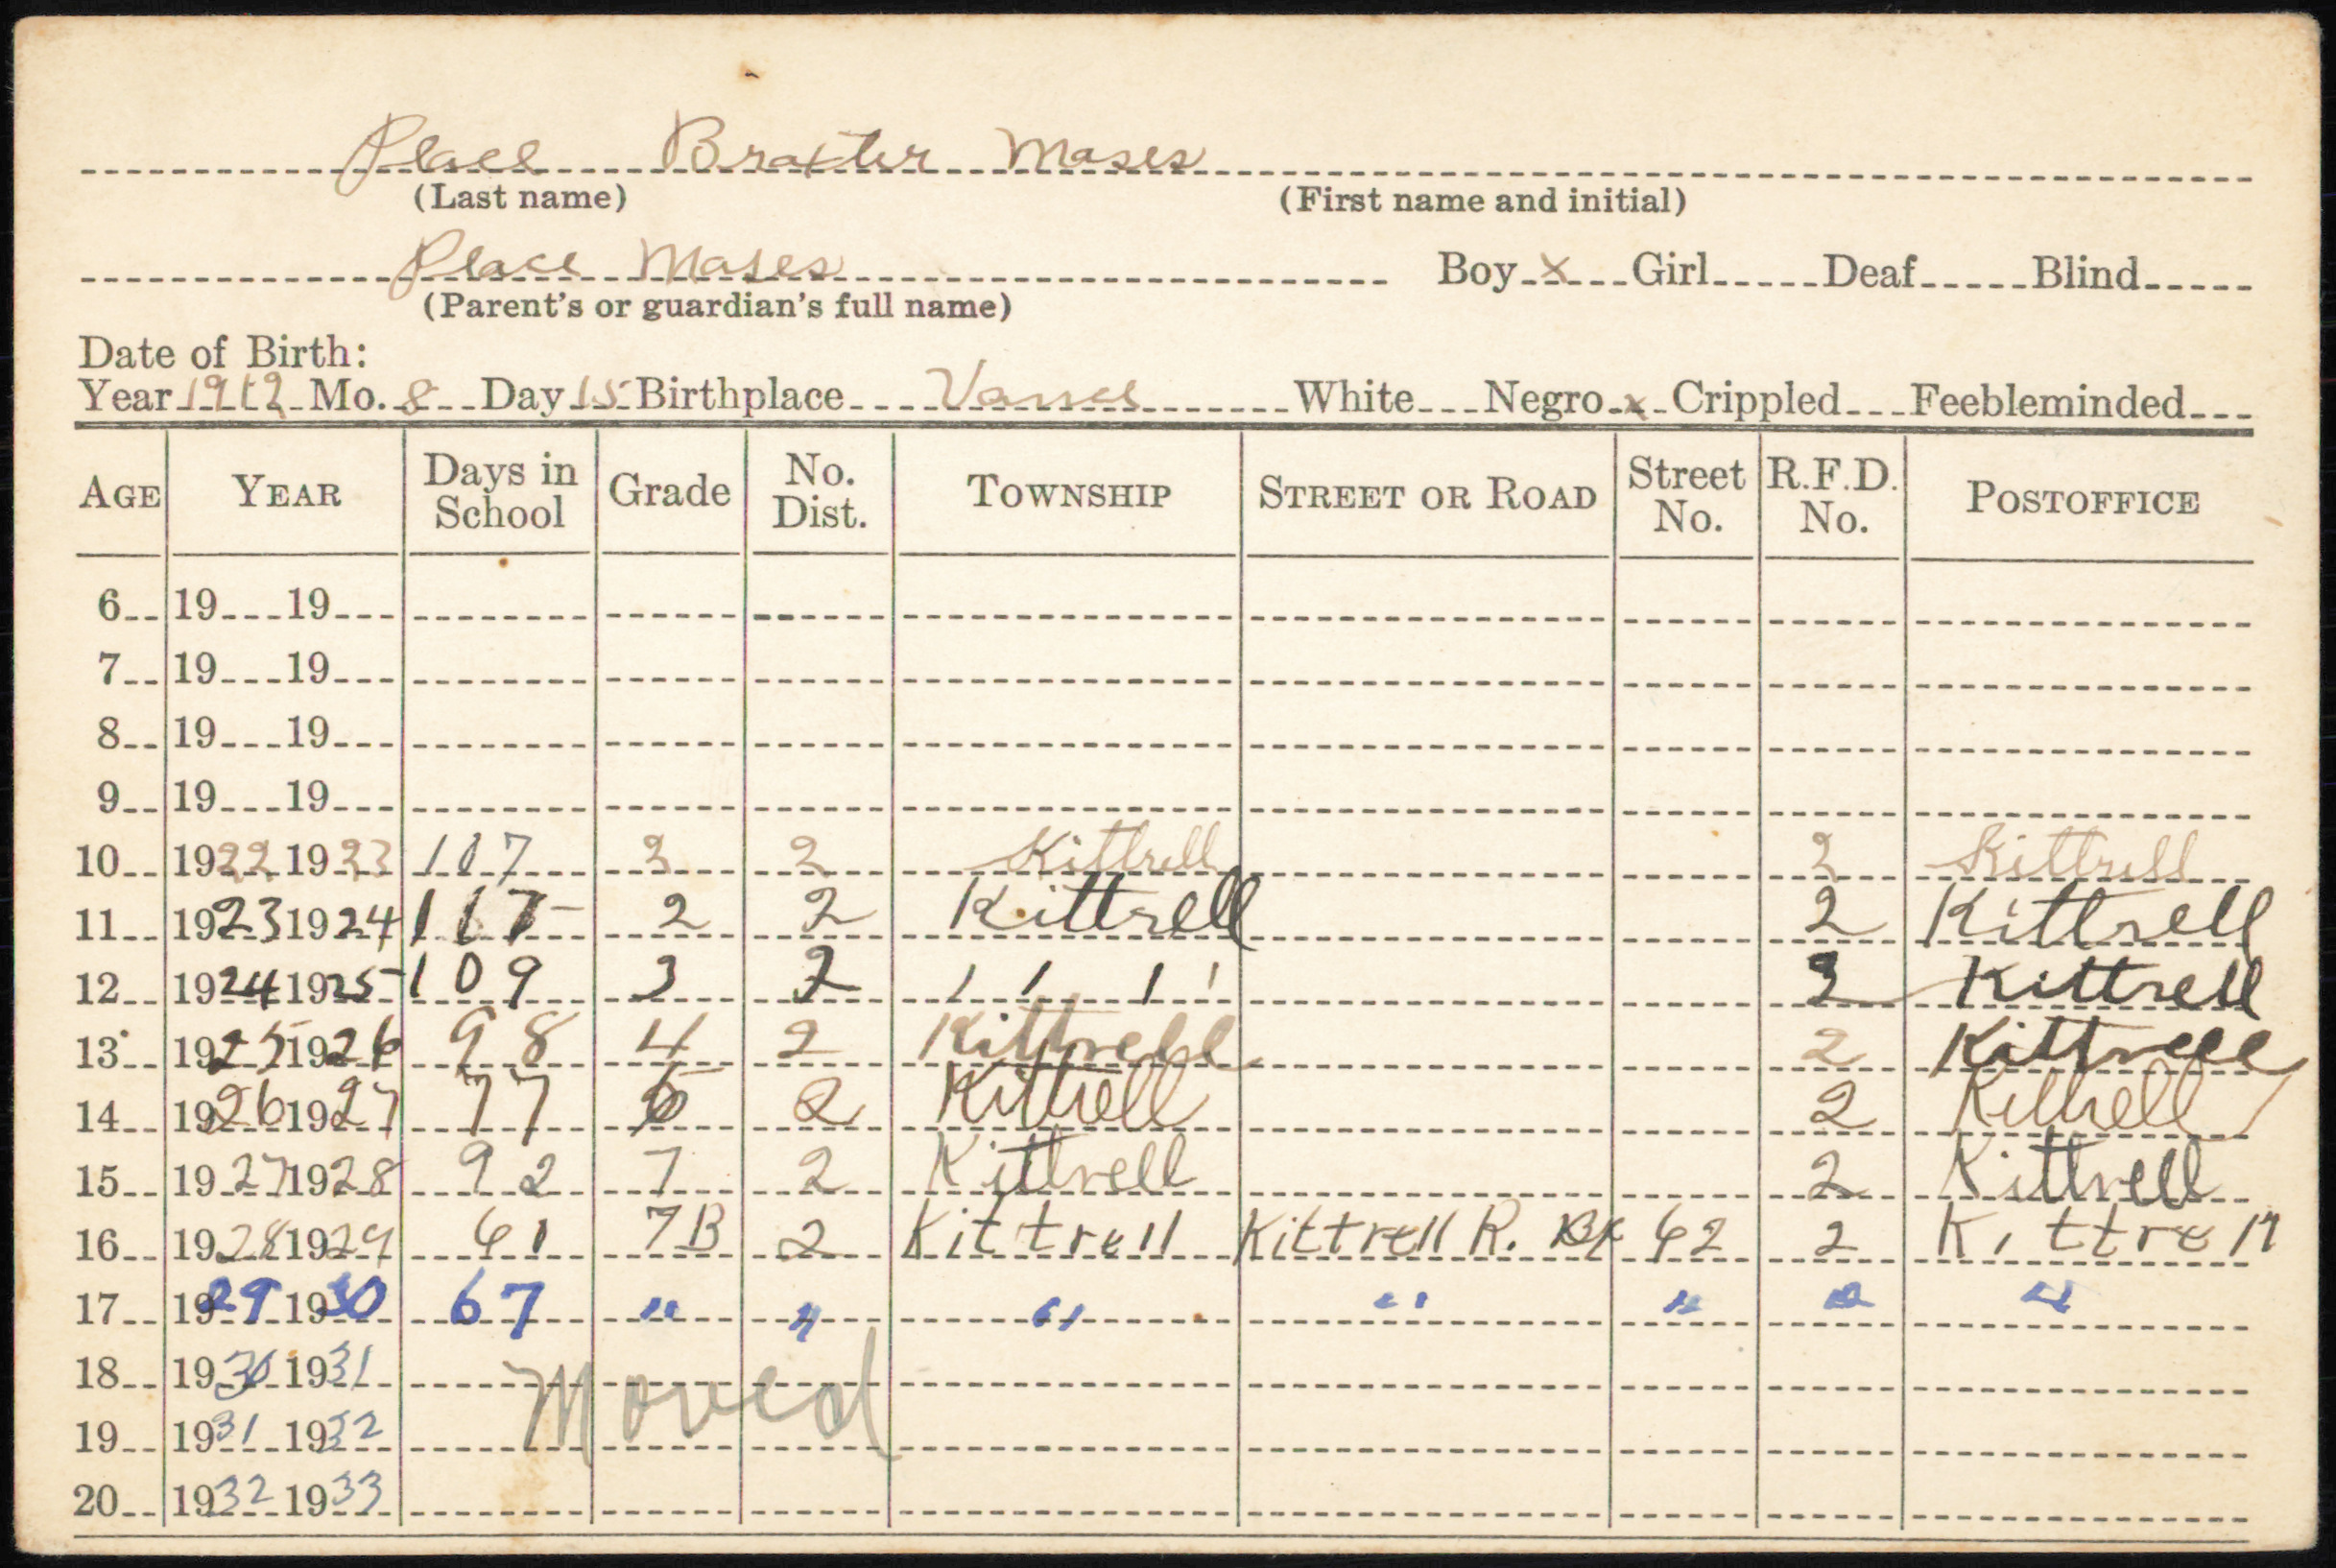 Place Braxter Moses
(Last name) (First name and initial)
Place Moses Boy x Girl Deaf Blind
(Parent's or guardian's full name)
Date of Birth:
Year 1912 Mo. 8 Day 15 Birthplace White Negro x Crippled Feebleminded
AGE YEAR Days in School Grade No. Dist. TOWNSHIP STREET OR ROAD Street No. R.F.D. No. POSTOFFICE
6 19 19
7 19 19
8 19 19
9 19 19
10 1922 1923 107 2 2 Kittrell 2 Kittrell
11 1923 1924 117 2 2 Kittrell 2 Kittrell
12 1924 1925 109 3 2 " " 2 Kittrell
13 1925 1926 98 4 2 Kittrell 2 Kittrell
14 1926 1927 77 2 Kittrell 2 Kittrell
15 1927 1928 92 7 2 Kittrell 2 Kittrell
16 1928 1929 61 7B 2 Kittrell Kittrell R. Bx 62 2 Kittrell
17 1929 1930 67 " " " " " " "
18 1930 1931 Moved
19 1931 1932
20 1932 1933